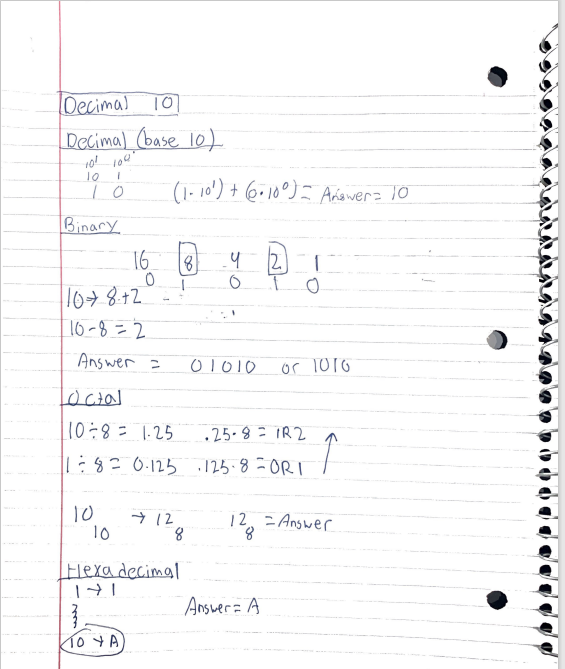 Decimal 10
Decimal (base 10)
10¹ 10⁰
10 1
1 0 (1·10¹) + (0·10⁰) = Answer = 10
Binary
16 8 4 2 1
0 1 0 1 0
10 → 8+2
10-8 = 2
Answer = 01010 or 1010
Octal
10 ÷ 8 = 1.25 .25·8 = 1R2
1 ÷ 8 = 0.125 .125·8 = 0R1
10₁₀ → 12₈ 12₈ = Answer
Hexadecimal
1 → 1
Answer = A
10 → A